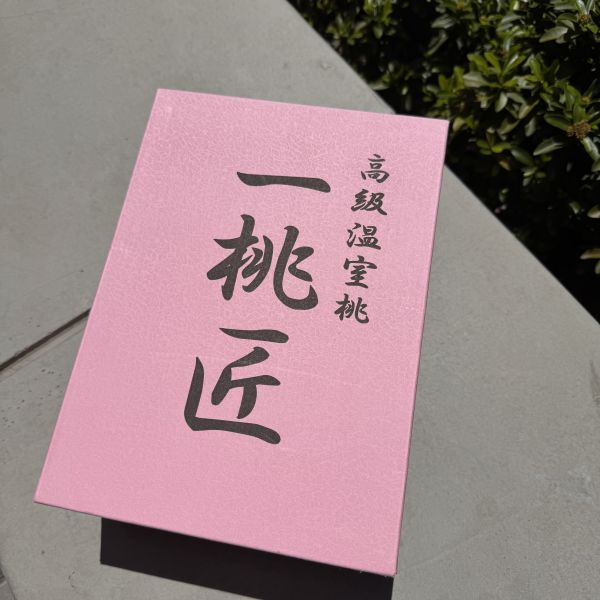 高級温室桃
一桃匠